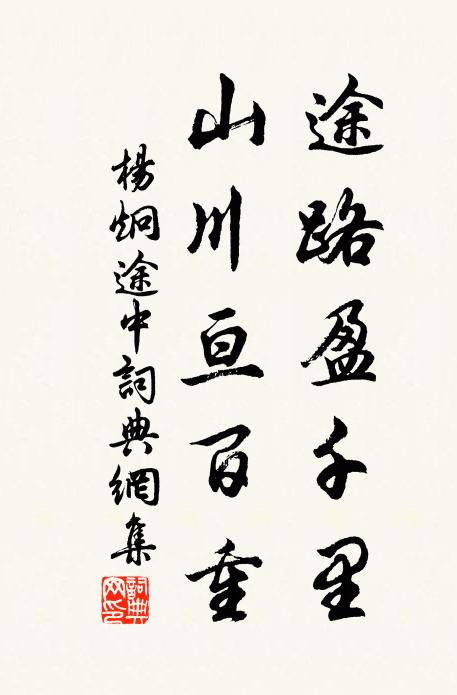 途路盈千里
山川亘百重
楊炯途中詞典網集
詞典網印